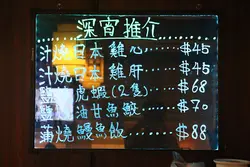 深宵推介
汁燒日本雞心 $45
汁燒日本雞肝 $45
鹽 虎蝦(2隻) $68
鹽 油甘魚鮫 $70
蒲燒鰻魚飯 $88